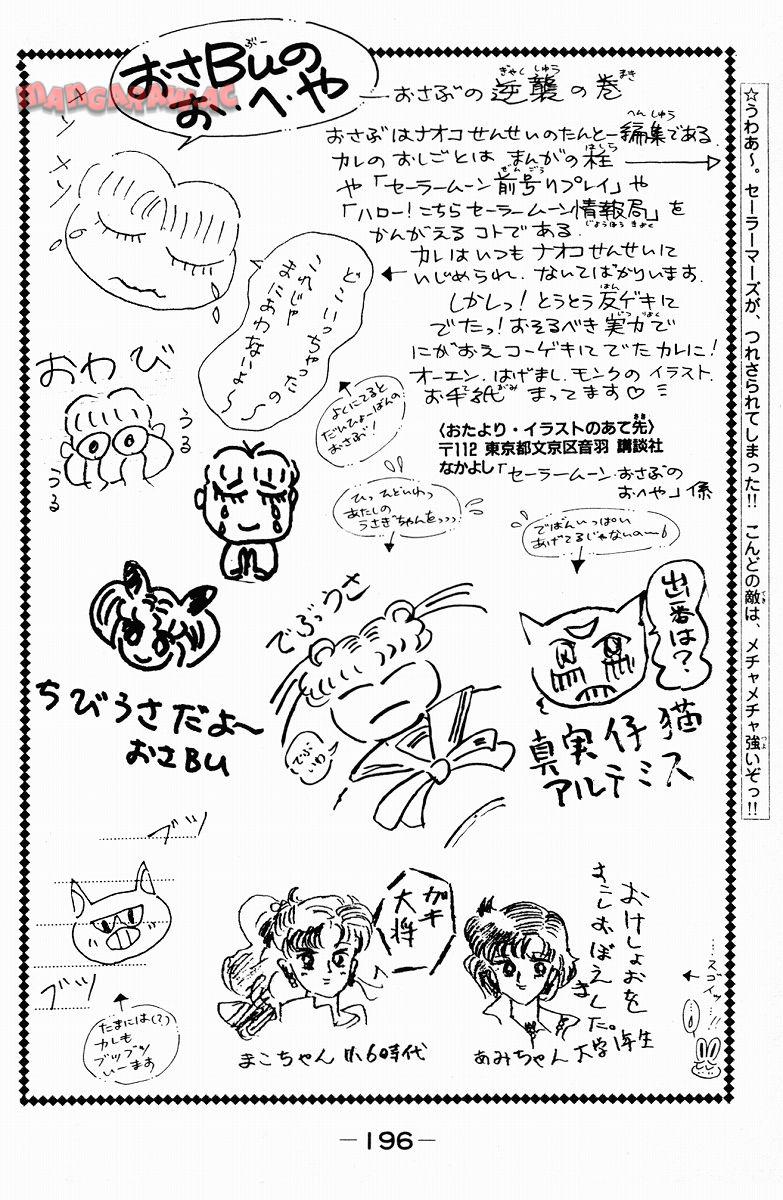 おさBuの
お・へ・や
MANGAMANIAC
おさぶの逆襲の巻
おさぶはナオコせんせいのたんとー編集である。
カレのおしごとは まんがの柱
や「セーラームーン前号リプレイ」や
「ハロー！こちらセーラームーン情報局」を
かんがえるコトである．
カレはいつもナオコせんせいに
いじめられ．ないてばかりいます．
しかしっ！とうとう反ゲキに
でたっ！おそるべき実力で
にがおえコーゲキにでたカレに！
オーエン．はげまし．モンクのイラスト．
お手紙 まってます♡
〈おたより・イラストのあて先〉
〒112 東京都文京区音羽 講談社
なかよし「セーラームーン・おさぶの
おへや」係
☆うわあ〜。セーラーマーズが、つれさられてしまった!! こんどの敵は、メチャメチャ強いぞっ!!
メソメソ
どこいっちゃったの
これじゃ
まにあわないよ〜〜
おわび
うる
うる
よくにてると
だいひょーばんの
おさぶ！
ひっ ひどいわっ
あたしの
うさぎちゃんをっっっ
でばんいっぱい
あげてるじゃないの〜
出番は？
でぶっうさ
でぶいわ
真実仔猫
アルテミス
ちびうさだよ〜
おさBU
ブツ
ブツ
たまには(?)
カレも
ブツブツ
いーます
ガキ大将
まこちゃん 小6時代
おけしょおを
すこしおぼえました。
あみちゃん 大学1年生
スゴイッ!!
—196—